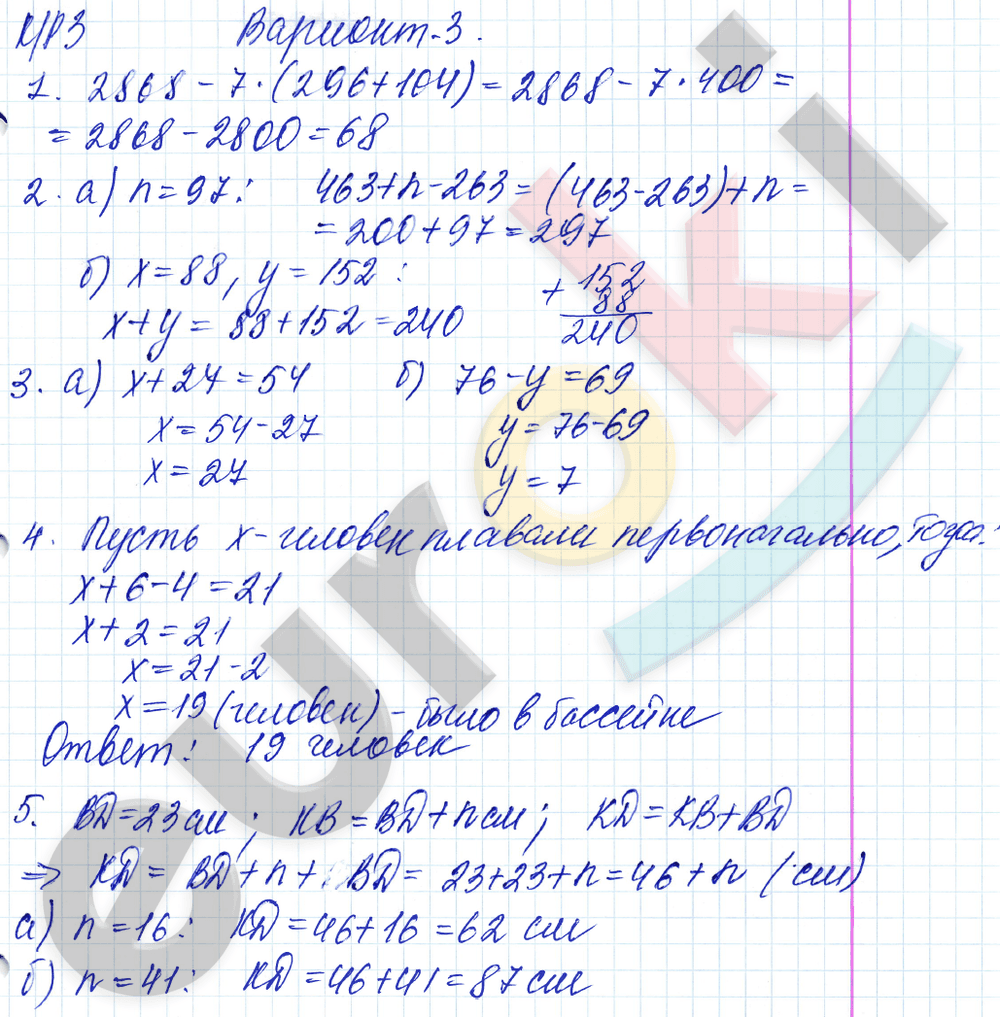 К/Р3 Вариант-3.
1. 2868 - 7·(296+104) = 2868 - 7·400 =
= 2868 - 2800 = 68
2. а) n = 97: 463+n-263 = (463-263)+n =
= 200+97 = 297
б) x = 88, y = 152 :
x+y = 88+152 = 240
+ 152
88
240
3. а) x+27 = 54 б) 76-y = 69
x = 54-27 y = 76-69
x = 27 y = 7
4. Пусть x - человек плавали первоначально, тогда:
x+6-4 = 21
x+2 = 21
x = 21-2
x = 19 (человек) - было в бассейне
Ответ: 19 человек
5. BD = 23 см; KB = BD+n см; KD = KB+BD
=> KD = BD+n+BD = 23+23+n = 46+n (см)
а) n = 16: KD = 46+16 = 62 см
б) n = 41: KD = 46+41 = 87 см
euroki